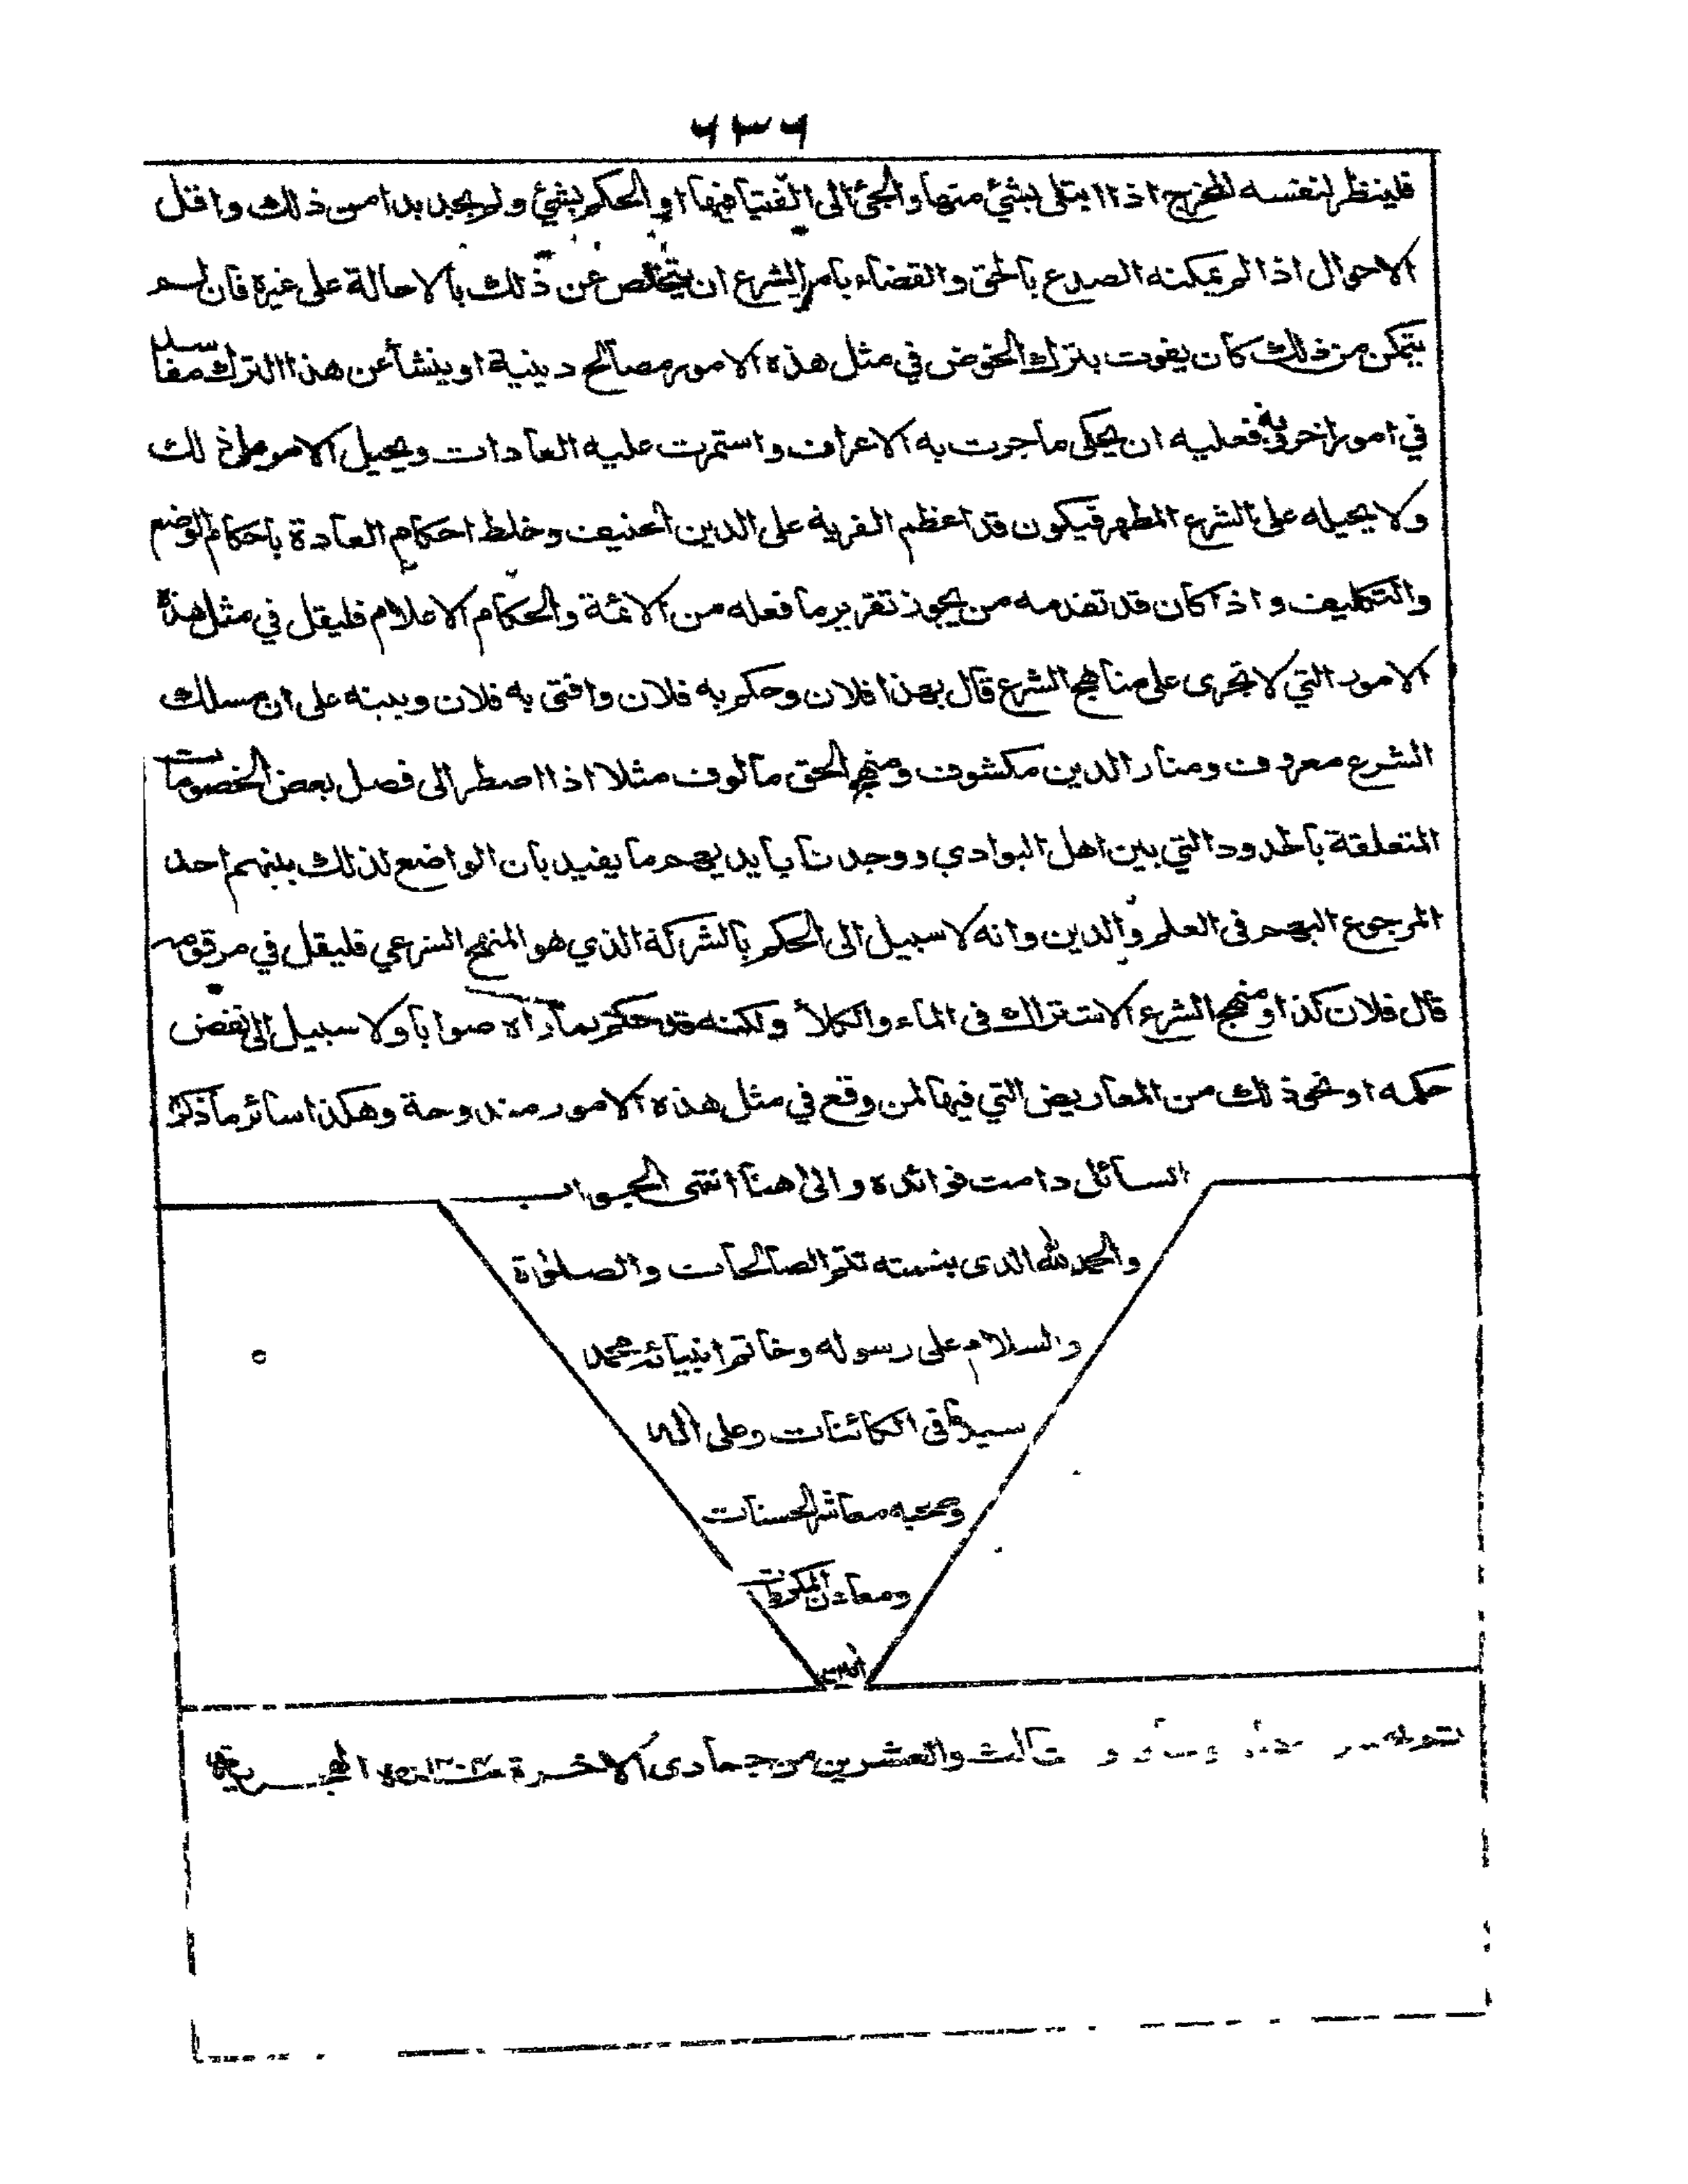 ٦٣٦
فلينظر لنفسه المخرج اذا ابتلى بشئ منها والجئ الى الفتيا فيها او الحكم بشئ ولم يجد بدا من ذلك واقل
الاحوال اذا لم يمكنه الصدع بالحق والقضاء بامر الشرع ان يتخلص عن ذلك بالاحالة على غيره فان لم
يتمكن من ذلك كان يفوت بترك الخوض في مثل هذه الامور مصالح دينية او ينشأ عن هذا الترك مفاسد
في امور اخروية فعليه ان يحكى ما جرت به الاعراف واستمرت عليه العادات ويحيل الامر على ذلك
ولا يحيله على الشرع المطهر فيكون قد اعظم الفرية على الدين الحنيف وخلط احكام العادة باحكام الوضع
والتكليف واذا كان قد تقدمه من يجوز تقرير ما فعله من الائمة والحكام الاعلام فليقل في مثل هذه
الامور التي لا تجرى على مناهج الشرع قال بهذا فلان وحكم به فلان وافتى به فلان وينبه على ان مسلك
الشرع معروف ومنار الدين مكشوف ومنهج الحق مالوف مثلا اذا اضطر الى فصل بعض الخصومات
المتعلقة بالحدود التي بين اهل البوادي ووجدنا بايديهم ما يفيد بان الواضع لذلك بينهم احد
المرجوع اليهم فى العلم والدين وانه لا سبيل الى الحكم بالشركة الذي هو المنهج الشرعي فليقل في مرقومه
قال فلان كذا ومنهج الشرع الاشتراك فى الماء والكلأ ولكنه قد حكم بما رآه صوابا ولا سبيل الى نقض
حكمه او نحو ذلك من المعاريض التي فيها لمن وقع في مثل هذه الامور مندوحة وهكذا سائر ما ذكره
السائل دامت فوائده والى هنا انتهى الجواب
والحمد لله الذى بنعمته تتم الصالحات والصلوة
والسلام على رسوله وخاتم انبيائه محمد
سيد الكائنات وعلى اله
وصحبه معاشر الحسنات
ومعادن المكرمات
ثالث والعشرين من جمادى الاخرة الهجرية